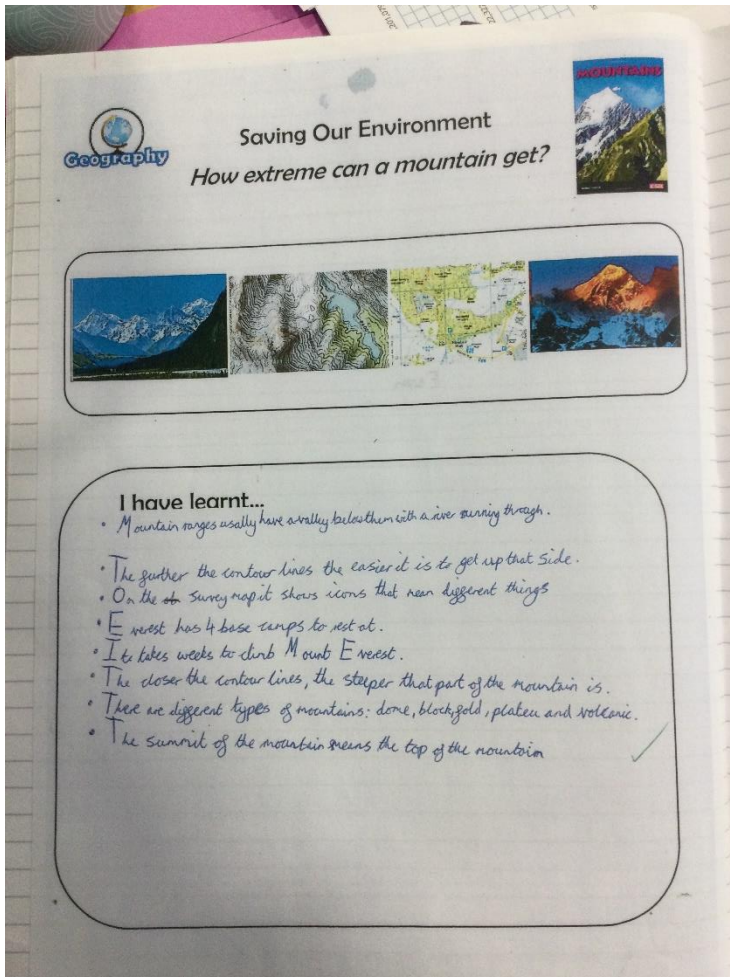 MOUNTAINS
Geography
Saving Our Environment
How extreme can a mountain get?
I have learnt...
• Mountain ranges usally have a valley below them with a river running through.
• The further the contour lines the easier it is to get up that side.
• On the survey map it shows icons that mean different things
• Everest has 4 base camps to rest at.
• Its takes weeks to climb Mount Everest.
• The closer the contour lines, the steeper that part of the mountain is.
• There are different types of mountains: dome, block, fold, plateu and volcanic.
• The summit of the mountain means the top of the mountain